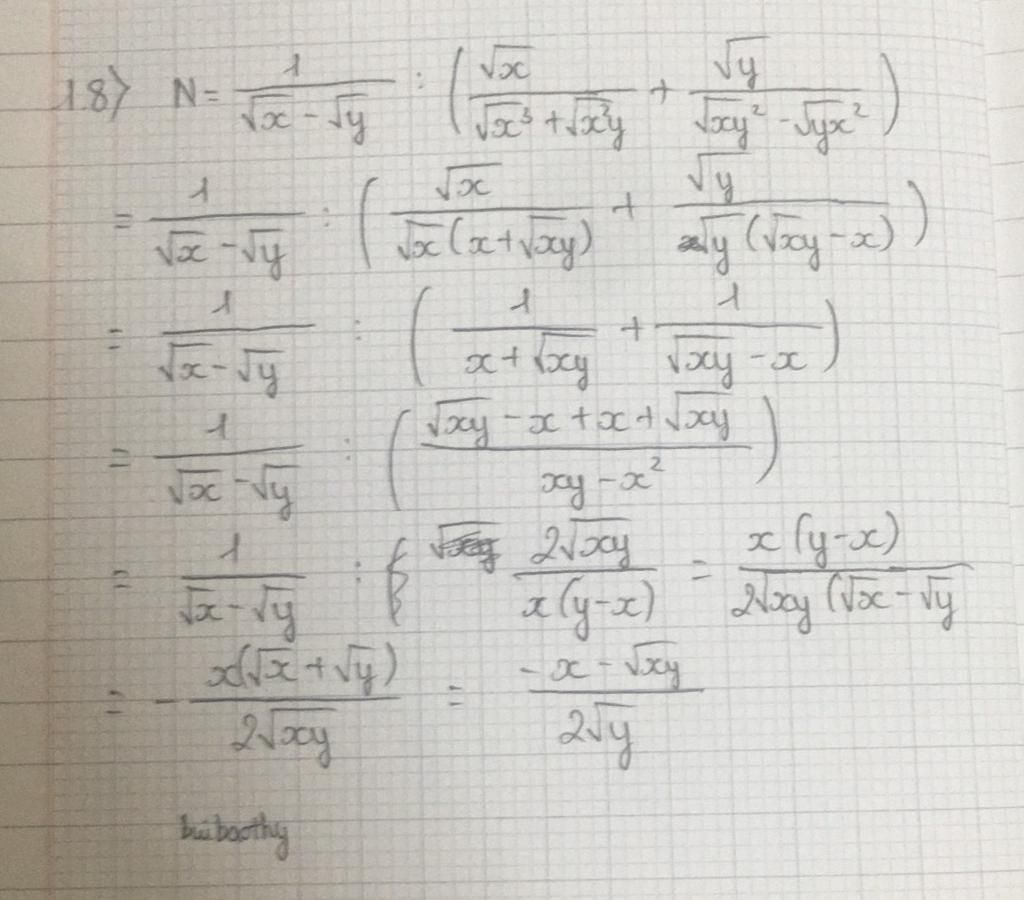 18) N = \frac{1}{\sqrt{x} - \sqrt{y}} : \left( \frac{\sqrt{x}}{\sqrt{x^3} + \sqrt{x^2y}} + \frac{\sqrt{y}}{\sqrt{xy^2} - \sqrt{yx^2}} \right)
= \frac{1}{\sqrt{x} - \sqrt{y}} : \left( \frac{\sqrt{x}}{\sqrt{x}(x + \sqrt{xy})} + \frac{\sqrt{y}}{\sqrt{y}(\sqrt{xy} - x)} \right)
= \frac{1}{\sqrt{x} - \sqrt{y}} : \left( \frac{1}{x + \sqrt{xy}} + \frac{1}{\sqrt{xy} - x} \right)
= \frac{1}{\sqrt{x} - \sqrt{y}} : \left( \frac{\sqrt{xy} - x + x + \sqrt{xy}}{xy - x^2} \right)
= \frac{1}{\sqrt{x} - \sqrt{y}} : \frac{2\sqrt{xy}}{x(y - x)} = \frac{x(y - x)}{2\sqrt{xy}(\sqrt{x} - \sqrt{y}}
= - \frac{x(\sqrt{x} + \sqrt{y})}{2\sqrt{xy}} = \frac{-x - \sqrt{xy}}{2\sqrt{y}}
buibaothy